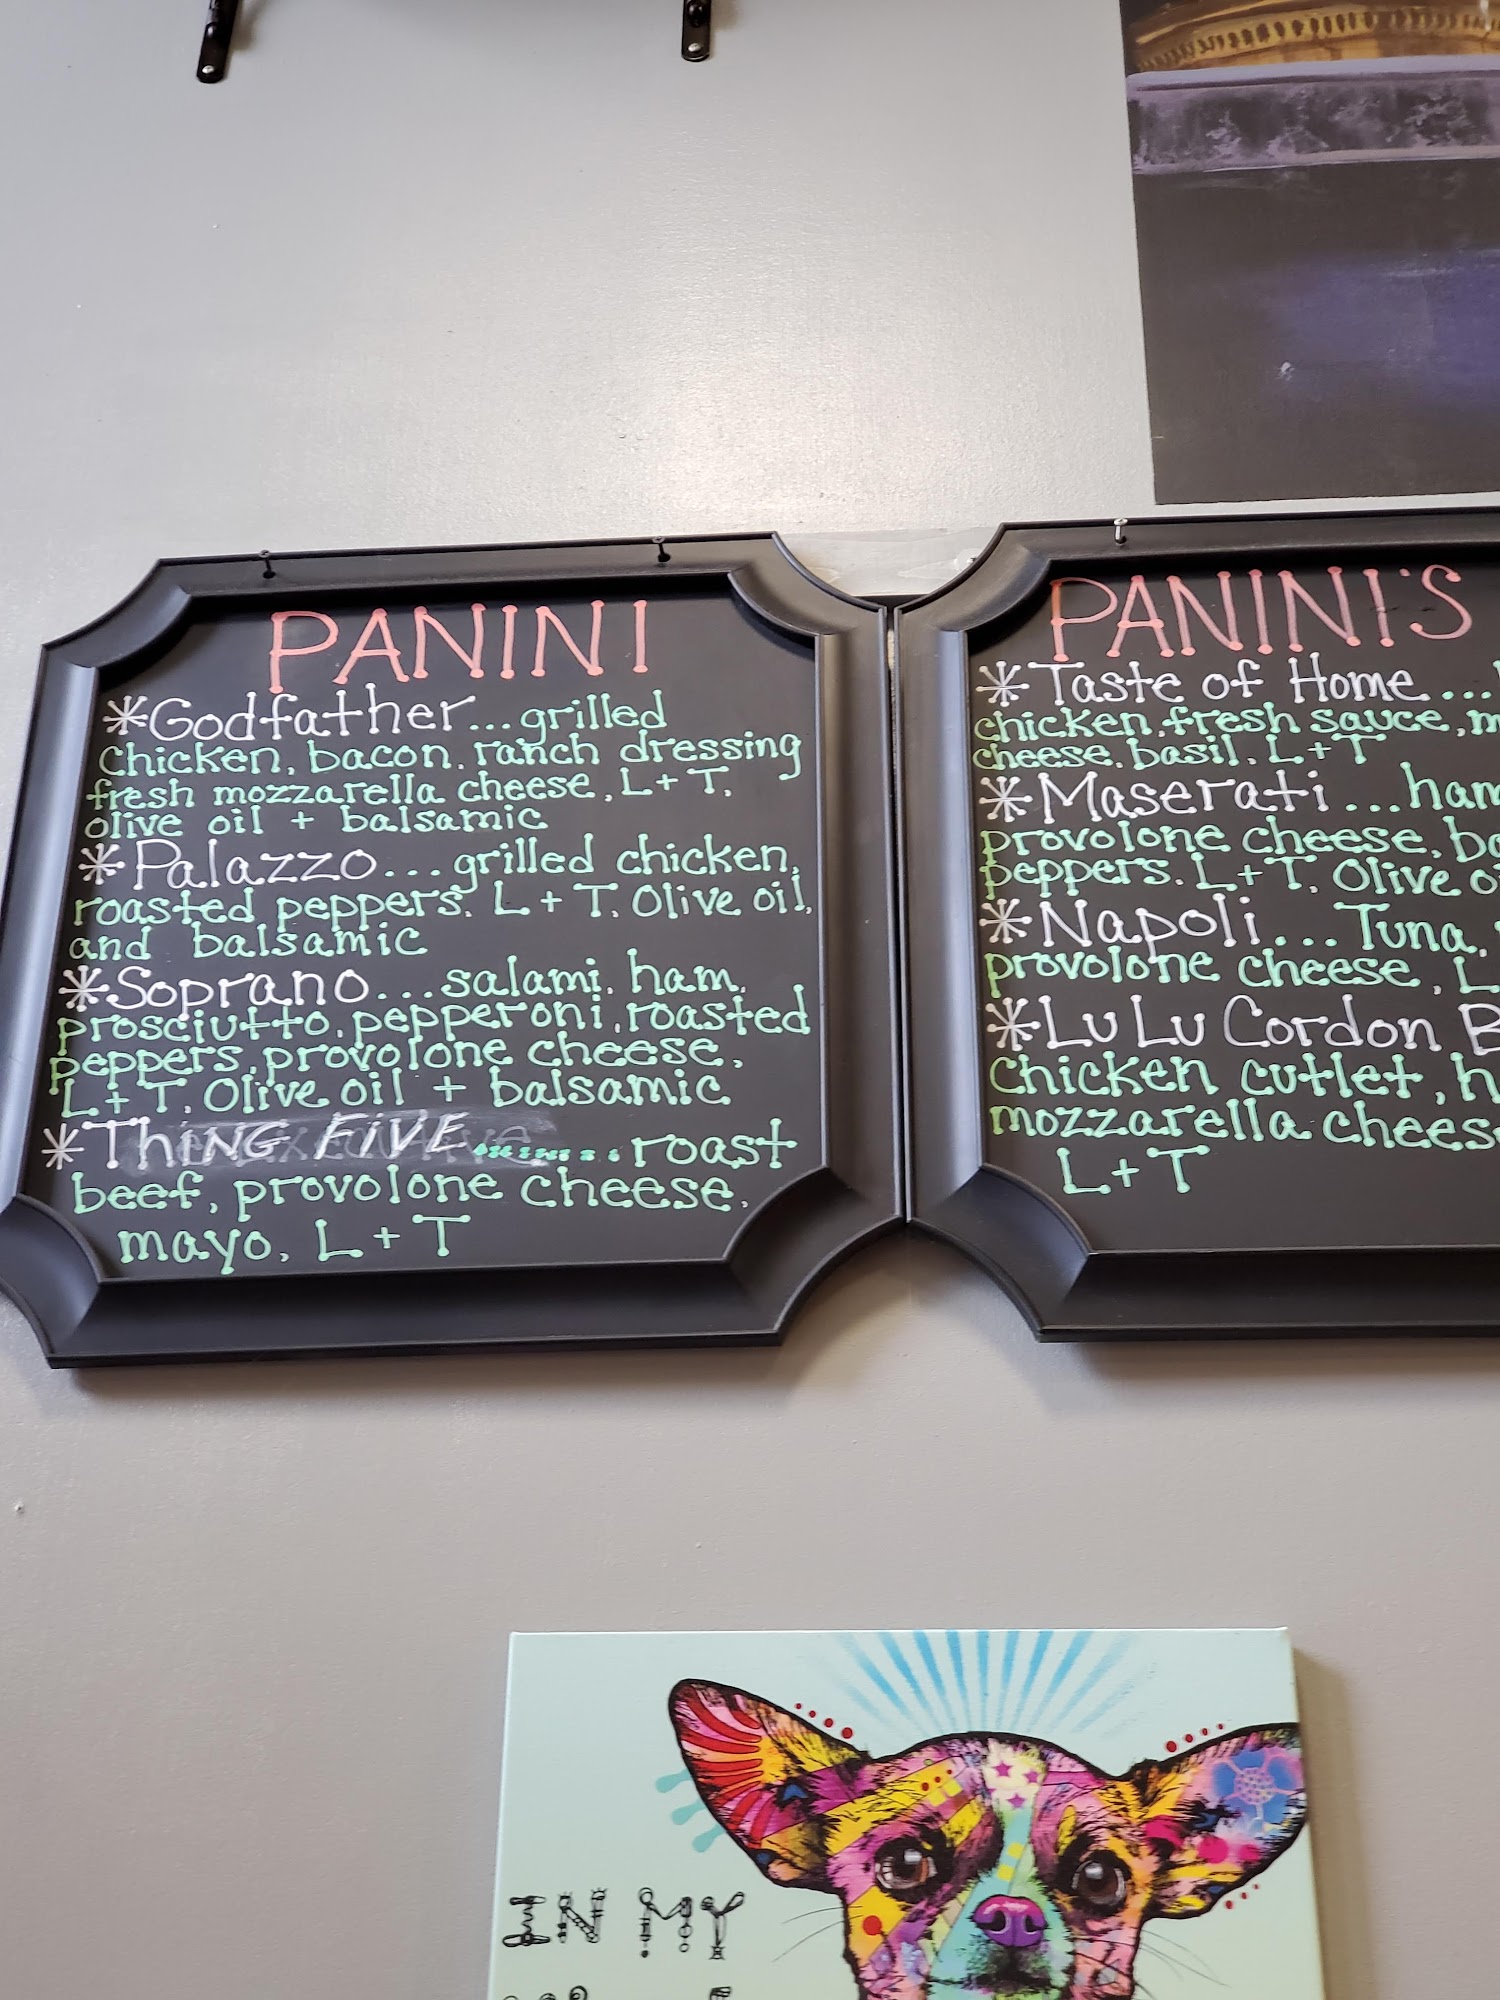 PANINI
*Godfather...grilled
chicken, bacon, ranch dressing
fresh mozzarella cheese, L+T,
olive oil + balsamic
*Palazzo...grilled chicken,
roasted peppers, L+T, Olive oil,
and balsamic
*Soprano...salami, ham,
prosciutto, pepperoni, roasted
peppers, provolone cheese,
L+T, Olive oil + balsamic
*Thing Five.........roast
beef, provolone cheese,
mayo, L+T
PANINI'S
*Taste of Home...
chicken, fresh sauce,
cheese, basil, L+T
*Maserati...ham
provolone cheese,
peppers, L+T, Olive
*Napoli...Tuna,
provolone cheese, L
*LuLu Cordon B
chicken cutlet, h
mozzarella chees
L+T
IN MY